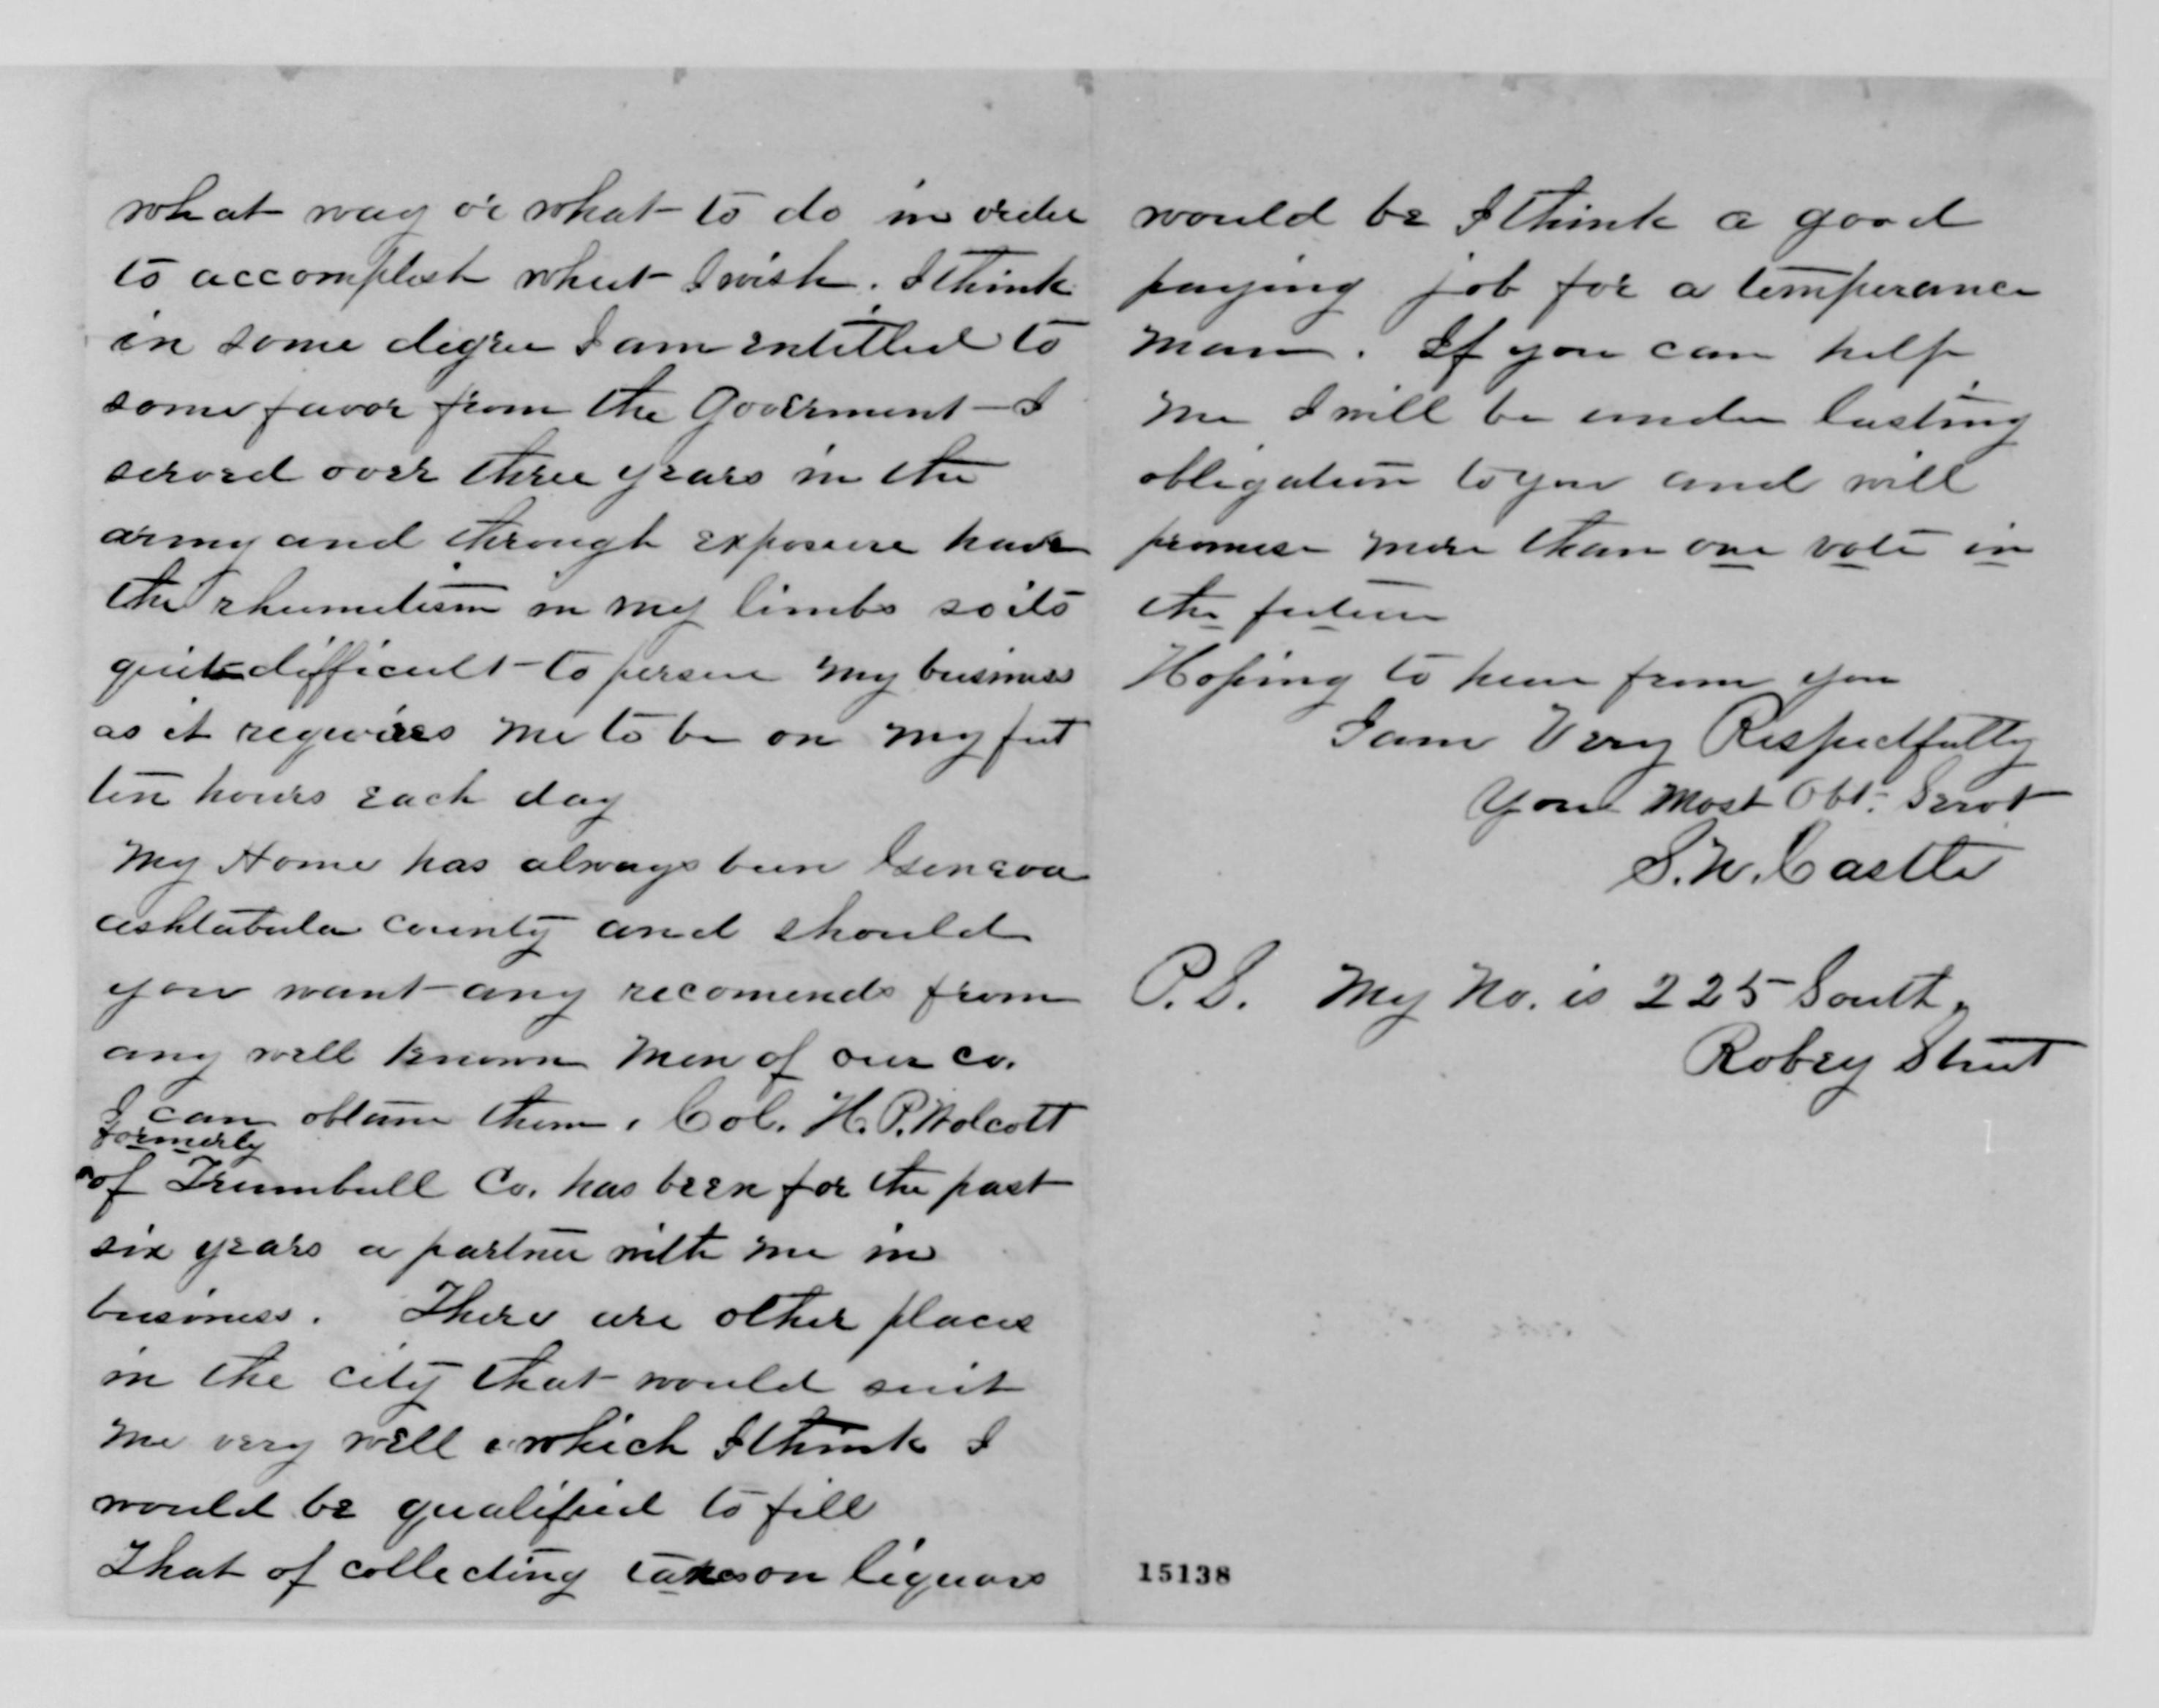 what way or what to do in order
to accomplish what I wish. I think
in some degree I am entitled to
some favor from the Goverment - I
served over three years in the
army and through exposure have
the rhumetism in my limbs so its
quite difficult to persue my business
as it requires me to be on my feet
ten hours each day
My Home has always been Geneva
ashtabula county and should
you want any recomends from
any well known men of our co.
I can obtain them. Col. H. P. Wolcott
formerly
of Trumbull Co. has been for the past
six years a partner with me in
business. There are other places
in the city that would suit
me very well & which I think I
would be qualified to fill
That of collecting taxes on liquors
would be I think a good
paying job for a temperance
man. If you can help
me I will be under lasting
obligation to you and will
promise more than one vote in
the future
Hoping to hear from you
I am Very Respectfully
Your Most Obt. Servt
S. W. Castle
P.S. My No. is 225 South
Robey Street
15138